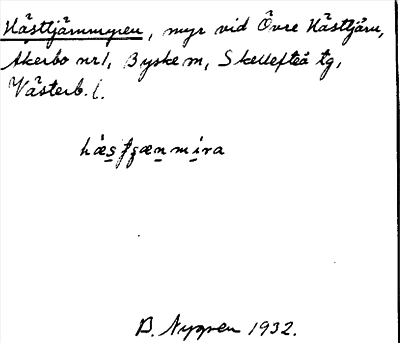 Hästtjärnmyren, myr vid Övre Hästtjärn,
Åkerbo nr 1, Byske sn, Skellefteå tg,
Västerb. l.
hæstʃænmira
B. Nygren 1932.